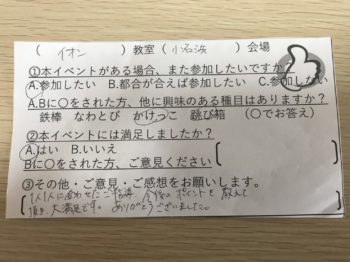 ( イオン )教室( 小名浜 )会場
①本イベントがある場合、また参加したいですか?
A.参加したい B.都合が合えば参加したい C.参加しない
A.Bに○をされた方、他に興味のある種目はありますか?
鉄棒 なわとび かけっこ 跳び箱 (○でお答え)
②本イベントには満足しましたか?
A.はい B.いいえ
Bに○をされた方、ご意見ください
③その他・ご意見・ご感想をお願いします。
1人1人に合わせたご指導 今後のポイントも教えて
頂き、大満足です。ありがとうございました。